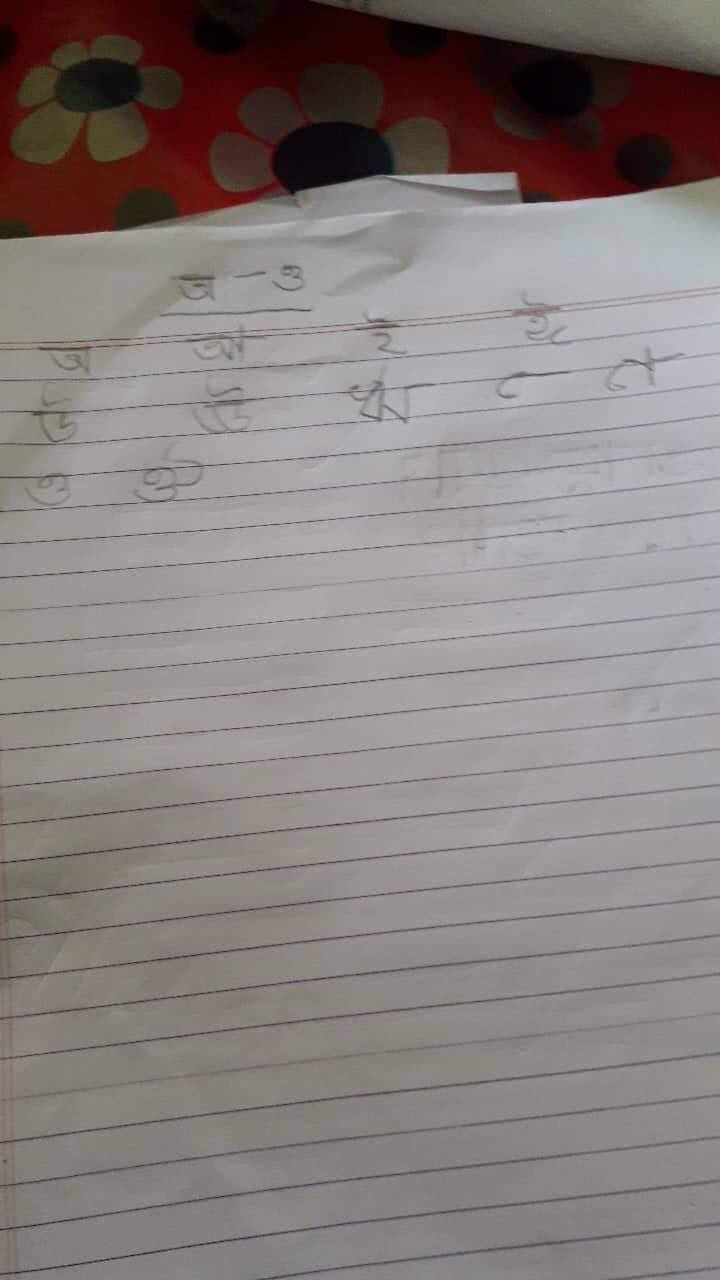 অ - ও
অ আ ই ঈ
উ ঊ ঋ এ ঐ
ও ঔ